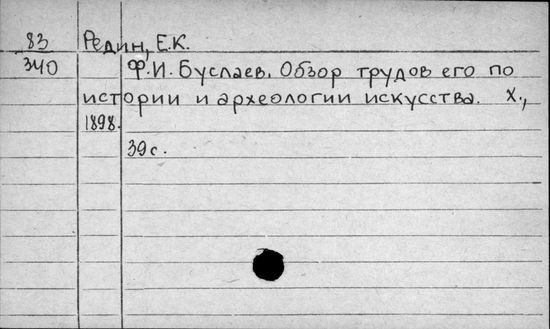 83 Редин, Е.К.
340 Ф.И. Буслаев. Обзор трудов его по
истории и археологии искусства. Х.,
1898.
39 с.